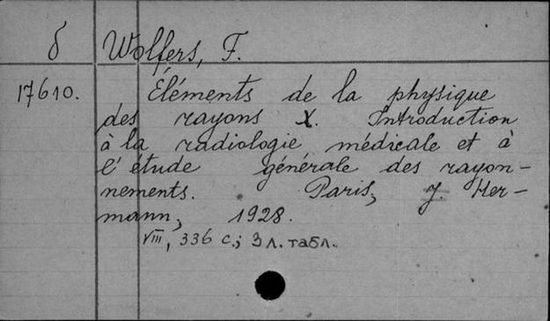 б Wolfers, F.
17610. Éléments de la physique
des rayons X. Introduction
à la radiologie médicale et à
l'étude générale des rayon-
nements. Paris, J. Her-
mann, 1928.
VIII, 336 с.; 3 л. табл.